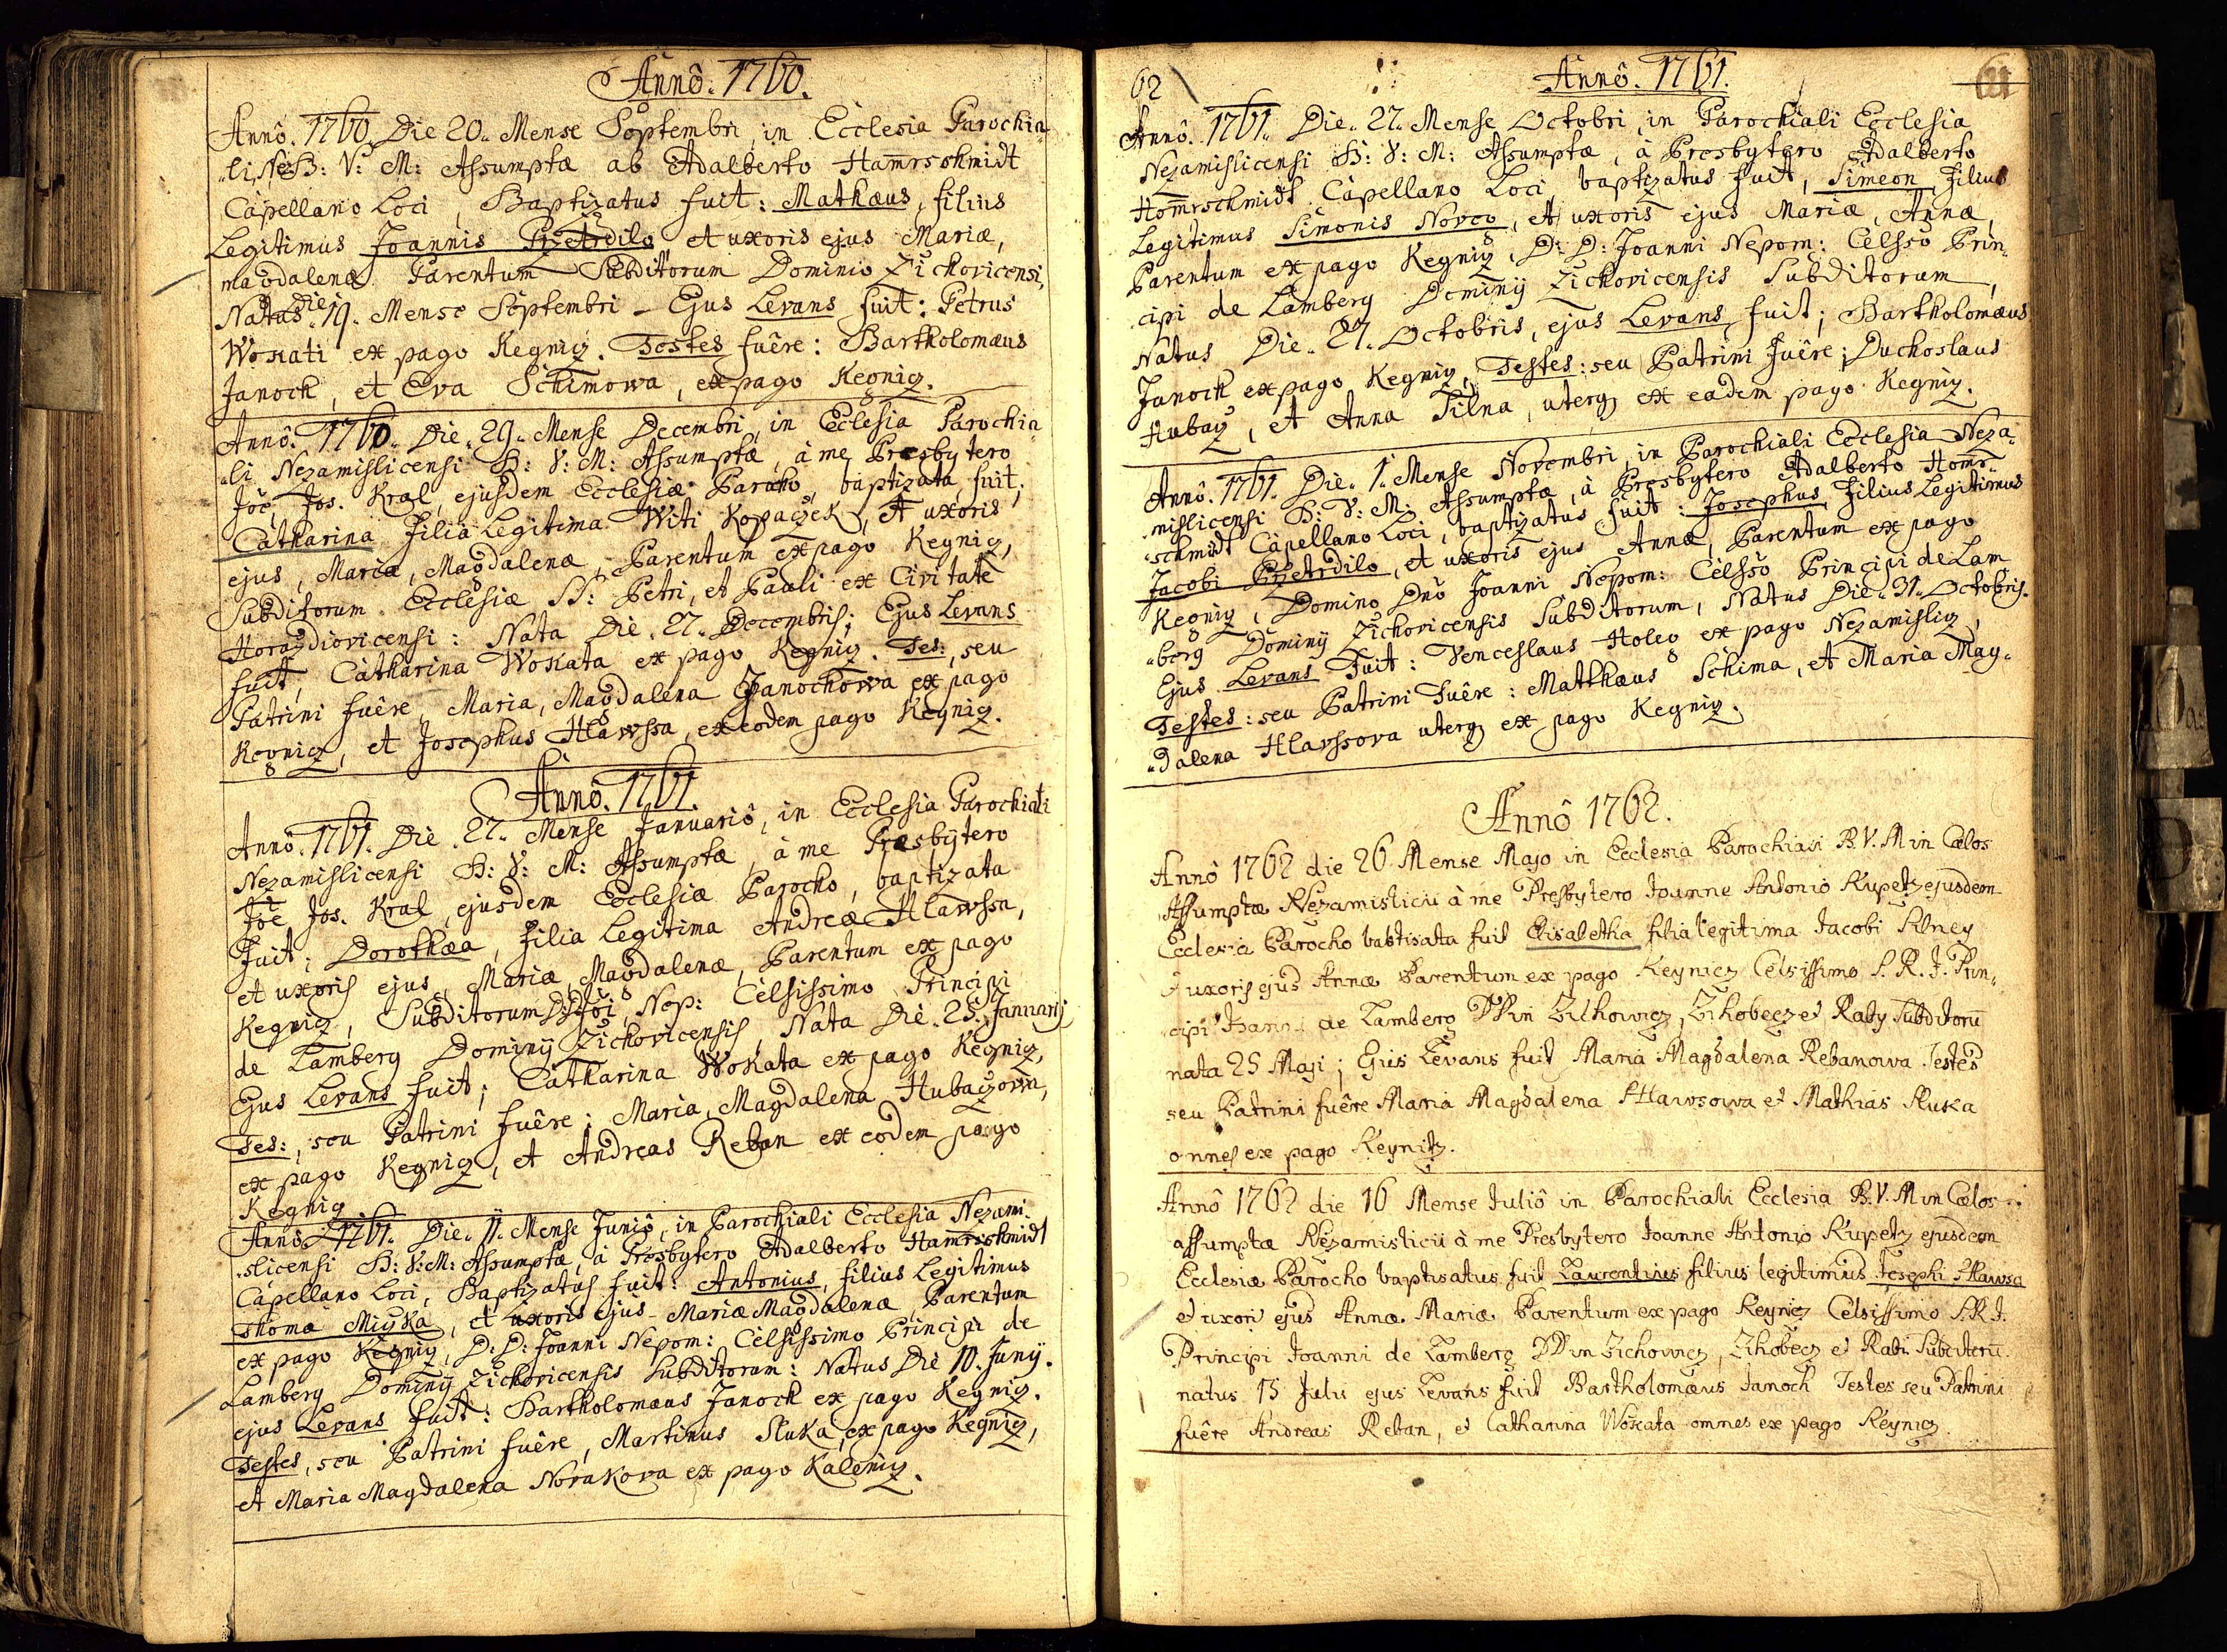 Annô. 1760.
Annô. 1760. Die 20. Mense Septembri, in Ecclesia Parochia-
„li, Nez: B: V: M: Assumptæ ab Adalberto Hamrschmidt
Capellano Loci, Baptizatus fuit: Mathæus, filius
Legitimus Joannis Pzetrdilo et uxoris ejus Mariæ,
magdalenæ Parentum Subditorum Dominio Zichovicensi,
Natus die 19. Mense Septembri – Ejus Levans fuit: Petrus
Wokati ex pago Kegnicz. Testes fuêre: Bartholomæus
Janoch, et Eva Schimowa, ex pago Kegnicz.
Annô. 1760. Die. 29. Mense Decembri, in Ecclesia Parochia
„li Nezamislicensi B: V: M: Assumptæ, à me Præsbytero
Joe, Jos. Kral, ejusdem Ecclesiæ Parocho, baptizata fuit;
Catharina Filia Legitima Witi Kopaczek, et uxoris
ejus, Mariæ, Magdalenæ, Parentum ex pago Kegnicz,
Subditorum Ecclesiæ S: Petri, et Pauli ex Civitate
Horazdiovicensi: Nata Die. 27. Decembris; Ejus Levans
fuit, Catharina Wokata ex pago Kegnicz. Tes:, seu
Patrini fuêre, Maria, Magdalena Janochowa ex pago
Kegnicz, et Josephus Hlawssa, ex eodem pago Kegnicz.
Annô. 1761.
Annô. 1761. Die. 27. Mense Januariô, in Ecclesia Parochiali
Nezamislicensi B: V: M: Assumptæ, à me Præsbytero
Joe Jos. Kral, ejusdem Ecclesiæ Parocho, baptizata
Fuit; Dorothæa, Filia Legitima Andreæ Hlawssa,
et uxoris ejus, Mariæ, Magdalenæ, Parentum ex pago
Kegnicz, Subditorum D: D: Joi, Nep: Celsissimo Principi
de Lamberg Dominij Zichovicensis, Nata Die. 25. Januarij
Ejus Levans fuit; Catharina Wokata ex pago Kegnicz,
Tes:, seu Patrini fuêre; Maria, Magdalena Hubaczowa,
ex pago Kegnicz, et Andreas Reban ex eodem pago
Kegnicz
Annô. 1761. Die. 11. Mense Juniô, in Parochiali Ecclesia Nezami-
„slicensi B: V: M: Assumptæ, à Presbytero Adalberto Hamrschmidt
Capellano Loci, Baptizatus fuit: Antonius, filius Legitimus
Thoma Miyka, et uxoris ejus Mariæ Magdalenæ, Parentum
ex pago Kegnicz, D: D: Joanni Nepom: Celsissimo Principi de
Lamberg Dominij Zichovicensis Subditorum: Natus Die 10. Junij.
ejus Levans fuit: Bartholomæus Janoch ex pago Kegnicz.
Testes, seu Patrini fuêre, Martinus Sluka, ex pago Kegnicz,
et Maria Magdalena Novakova ex pago Kalenicz.
62
Annô. 1761.
Annô. 1761. Die. 27. Mense Octobri, in Parochiali Ecclesia
Nezamislicensi B: V: M: Assumptæ, à Presbytero Adalberto
Homrschmidt Capellano Loci baptizatus fuit, Simeon, Filius
Legitimus Simonis Novco, et uxoris ejus Mariæ, Annæ,
Parentum ex pago Kegnicz, D: D: Joanni Nepom: Celsso Prin-
„cipi de Lamberg Dominij Zichovicensis Subditorum,
Natus Die. 27. Octobris, ejus Levans fuit; Bartholomæus
Janoch ex pago Kegnicz, Testes: seu Patrini fuêre; Duchoslaus
Hubacz, et Anna Filna, uterq ex eadem pago Kegnicz.
Annô. 1761. Die. 1. Mense Novembri, in Parochiali Ecclesia Neza-
„mislicensi B: V: M: Assumptæ, à Presbytero Adalberto Homr-
„schmidt Capellano Loci, baptizatus fuit: Josephus, Filius Legitimus
Jacobi Pzetrdilo, et uxoris ejus Annæ, Parentum ex pago
Kegnicz, Domino Dnô Joanni Nepom: Celssô Principi de Lam-
„berg Dominij Zichovicensis Subditorum, Natus Die. 31. Octobris.
Ejus Levans Fuit: Venceslaus Holeg ex pago Nezamislicz,
Testes: seu Patrini Fuêre: Matthæus Schima, et Maria Mag-
„dalena Hlavssova uterq ex pago Kegnicz.
Annô 1762.
Annô 1762 die 26 Mense Majo in Ecclesia Parochiali B.V.M in Cælos
Assumptæ Nezamislicii à me Presbytero Joanne Antonio Kupetz ejusdem
Ecclesiæ Parocho babtisata fuit Elisabetha filia legitima Jacobi Silney
et uxoris ejus Annæ Parentum ex pago Keynicz Celsissimo S. R. J. Prin-
„cipi Joanni de Lamberg DD in Zichowicz, Zihobecz et Raby Subditoru
nata 25 Maji; Ejus Levans fuit Maria Magdalena Rebanowa Testes
seu Patrini fuêre Maria Magdalena Hlawsowa et Mathias Sluka
omnes ex pago Keynitz.
Annô 1762 die 16 Mense Juliô in Parochiali Ecclesia B.V.M in Cælos
assumptæ Nezamislicii à me Presbytero Joanne Antonio Kupetz ejusdem
Ecclesiæ Parocho baptisatus fuit Laurentius filius legitimus Josephi Hlawsa
et uxori ejus Annæ Mariæ Parentum ex pago Keynicz Celsissimo S.R.J.
Principi Joanni de Lamberg DD in Zichovicz, Zihobecz et Rabi Subditoru
natus 15 Julii ejus Levans fuit Bartholomæus Janoch Testes seu Patrini
fuêre Andreas Reban, et Catharina Wokata omnes ex pago Keynicz.